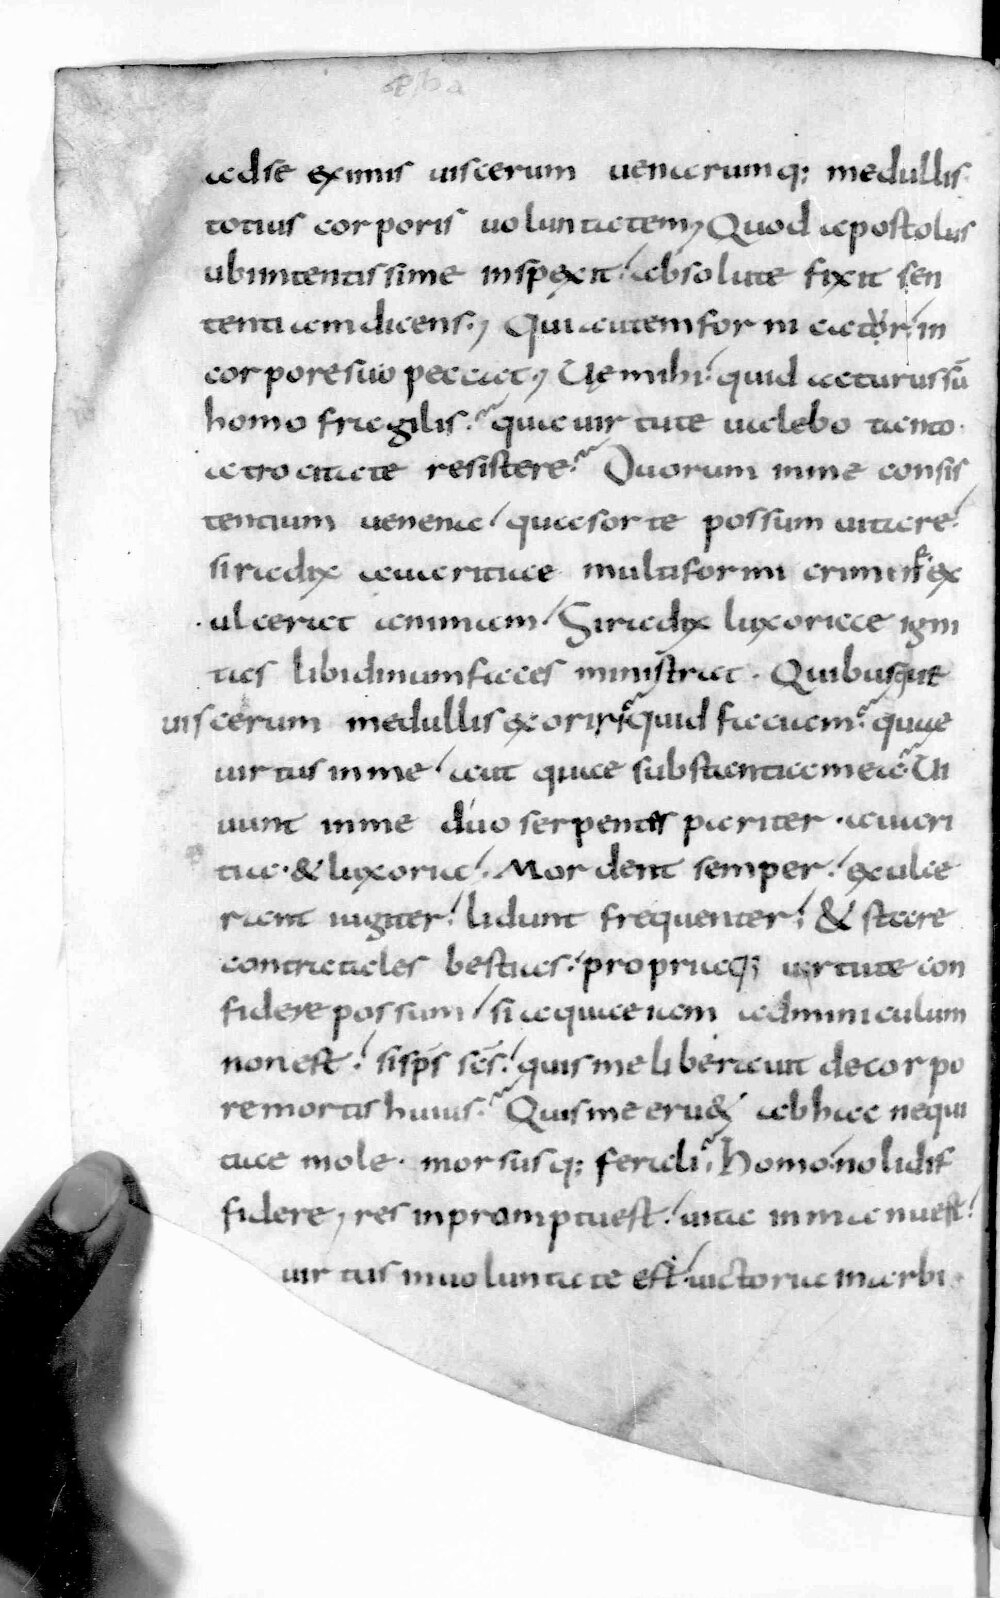 ad se ex imis uiscerum uenarumq; medullis
totius corporis uoluntatem; Quod apostolus
ubi intentissime inspexit. absolute fixit sen
tentiam dicens.; Qui autem fornicator. in
corpore suo peccat.; Uę mihi. quid acturus sū
homo fragilis. qua uirtute ualebo tanto.
atrocitate resistere. Quorum in me consis
tentium uenena. qua sorte possum uitare.
si radix auaritiae multiformi criminis ex
ulcerat animam. Si radix luxoriae igni
tas libidinum faces ministrat. Quibusque
uiscerum medullis exorir&. quid faciam. quae
uirtus in me. aut quae substantia mea. Ui
uunt in me duo serpentes pariter. auari
tia. & luxoria. Mordent semper. exulce
rant iugiter. lidunt frequenter. & stare
contra tales bestias. propriaq; uirtute con
fidere possum. si aquae uam adminiculum
non est. si sp̄s sc̄s. quis me liberauit de corpo
re mortis huius. Quis me eru& ab hac nequi
tiae mole. morsusq; ferali. Homo. noli dif
fidere, res in promptu est. uita in manu est.
uirtus in uoluntate est. uictoria in arbi